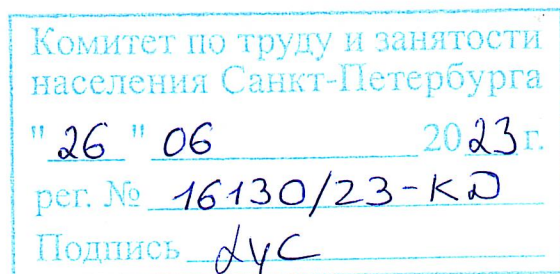 Комитет по труду и занятости
населения Санкт-Петербурга
"26" 06 2023 г.
рег. № 16130/23-КД
Подпись